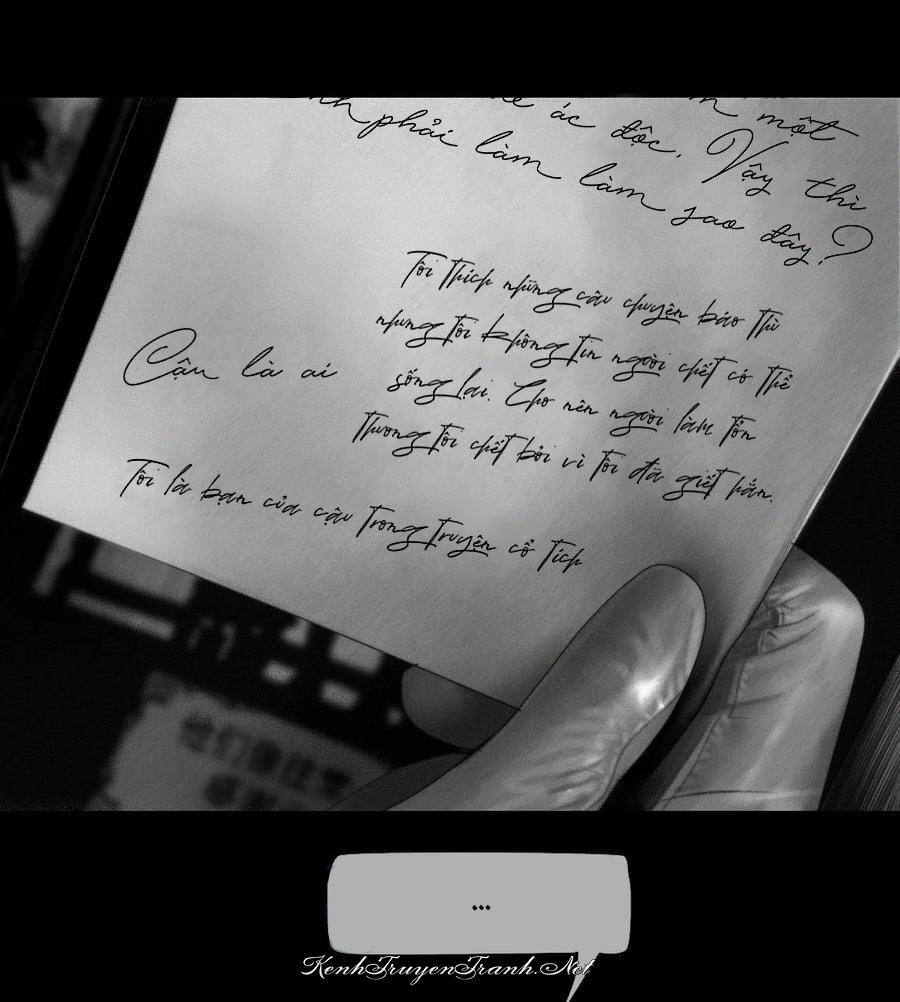 một
ác độc. Vậy thì
phải làm làm sao đây?
Tôi thích những câu chuyện báo thù
nhưng tôi không tin người chết có thể
sống lại. Cho nên người làm tổn
thương tôi chết bởi vì tôi đã giết hắn.
Cậu là ai
Tôi là bạn của cậu trong truyện cổ tích
...
KenhTruyenTranh.Net